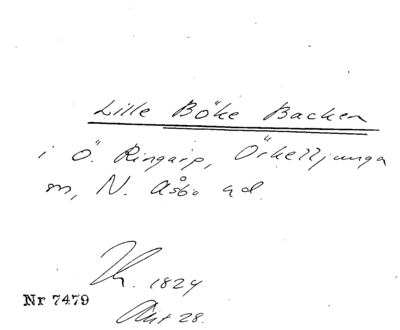 Lille Böke Backen
i Ö. Ringarp, Örkelljunga
sn, N. Åsbo hd.
1824
Nr 7479
Akt 28.